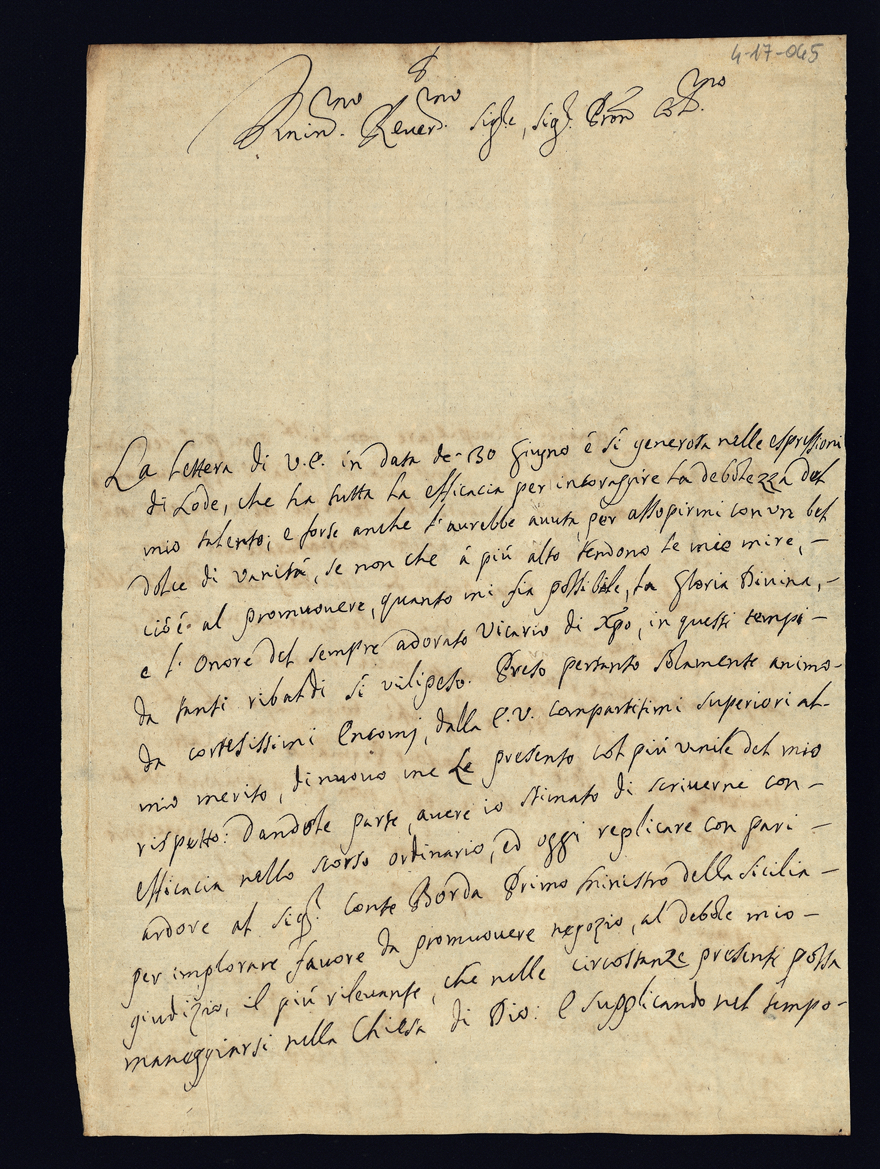 4-17-045
Rmin.mo Reuer.mo Sig.re, Sig.r Pron Col.mo
La Lettera di V.E. in data de 30 Giugno é sí generosa nelle espressioni
di Lode, che ha tutta la efficacia per incoraggire la debolezza del
mio talento; e forse anche l'aurebbe auuta per assopirmi con un bel
dolce di vanitá, se non che á piú alto tendono le mie mire, -
cioé al promuouere, quanto mi sia possibile, la Gloria Diuina, -
e l'Onore del sempre adorato Vicario di Xpo, in questi tempi -
da tanti ribaldi sí vilipeso. Preso pertanto solamente animo -
da cortesissimi Encomj, dalla E.V. compartitimi superiori al -
mio merito, di nuouo me Le presento col piú umile del mio
rispetto: dandole parte, auere io stimato di scriuerne con -
efficacia nello scorso ordinario, ed oggi replicare con pari -
ardore al Sig.r Conte Borda Primo Ministro della Sicilia -
per implorare fauore da promuouere negozio, al debole mio -
giudizio, il piú rileuante, che nelle circostanze presenti possa
maneggiarsi nella Chiesa di Dio: E supplicando nel tempo -